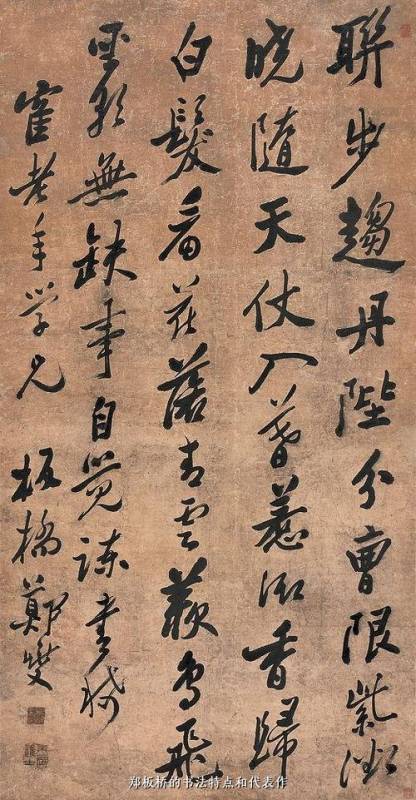 聯步趨丹陛分曹限紫微
曉隨天仗入暮惹御香歸
白髮看花落青雲羨鳥飛
聖朝無缺事自覺諫書稀
寉老年学兄 板橋鄭燮
郑板桥的书法特点和代表作